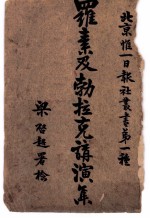 北京惟一日報社叢書第一種
羅素及勃拉克講演集
梁啓超署檢